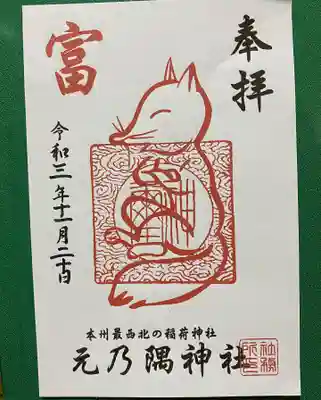 奉拝
富
令和三年十一月二十日
本州最西北の稲荷神社
元乃隅神社